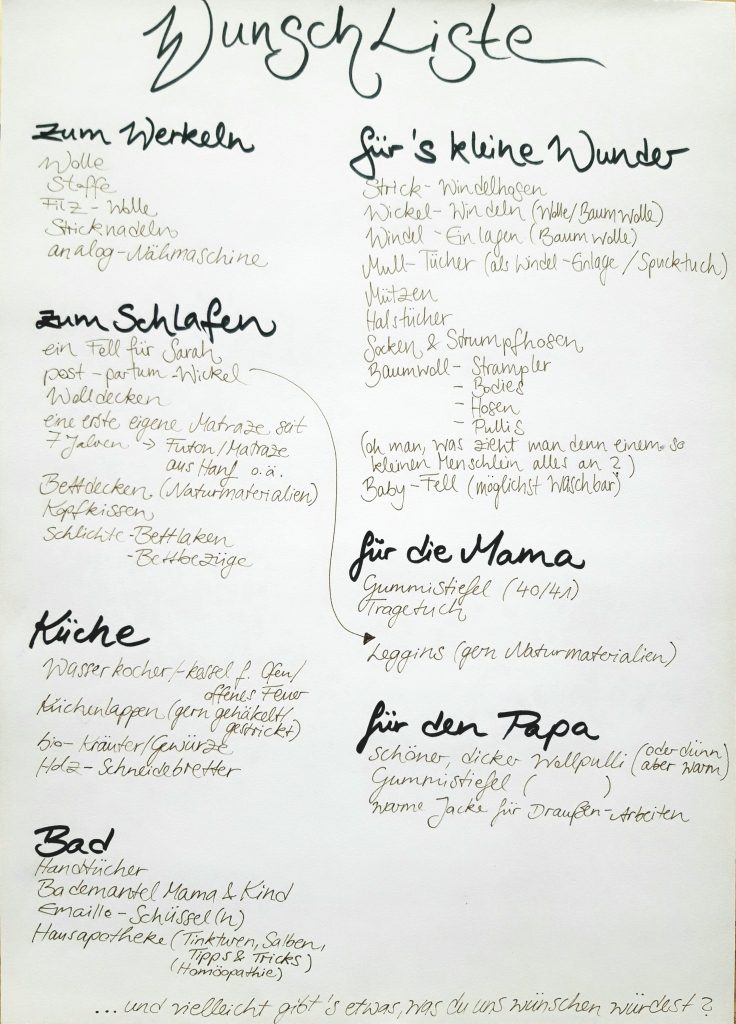 WunschListe
zum Werkeln
Wolle
Stoffe
Filz-Wolle
Stricknadeln
analog-Nähmaschine
zum Schlafen
ein Fell für Sarah
post-partum-Wickel
Wolldecken
eine erste eigene Matraze seit
7 Jahren → Futon/Matraze
aus Hanf o.ä.
Bettdecken (Naturmaterialien)
Kopfkissen
Schlichte-Bettlaken
-Bettbezüge
Küche
Wasserkocher/-kessel f. Ofen/
offenes Feuer
Küchenlappen (gern gehäkelt/
gestrickt)
bio-Kräuter/Gewürze
Holz-Schneidebretter
Bad
Handtücher
Bademantel Mama & Kind
Emaille-Schüssel(n)
Hausapotheke (Tinkturen, Salben,
Tipps & Tricks)
(Homöopathie)
für's kleine Wunder
Strick-Windelhosen
Wickel-Windeln (Wolle/Baumwolle)
Windel-Einlagen (Baumwolle)
Mull-Tücher (als Windel-Einlage/Spucktuch)
Mützen
Halstücher
Socken & Strumpfhosen
Baumwoll-Strampler
-Bodies
-Hosen
-Pullis
(oh man, was zieht man denn einem so
kleinen Menschlein alles an?)
Baby-Fell (möglichst waschbar)
für die Mama
Gummistiefel (40/41)
Tragetuch
Leggins (gern Naturmaterialien)
für den Papa
schöner, dicker Wollpulli (oder dünn
aber warm)
Gummistiefel ( )
warme Jacke für Draußen-Arbeiten
...und vielleicht gibt's etwas, was du uns wünschen würdest?